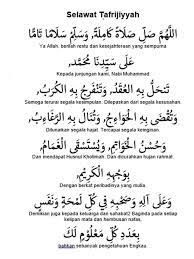 Selawat Tafrijiyyah
اللّٰهُمَّ صَلِّ صَلَاةً كَامِلَةً، وَسَلِّمْ سَلَامًا تَامًّا
Ya Allah. berilah restu dan kesejahteraan yang sempurna
عَلَى سَيِّدِنَا مُحَمَّدٍ،
Kepada junjungan kami, Nabi Muhammad.
تَنْحَلُّ بِهِ الْعُقَدُ، وَتَنْفَرِجُ بِهِ الْكُرَبُ،
Semoga terurai segala kesimpulan. Dilepaskan dari segala kesusahan.
وَتُقْضَى بِهِ الْحَوَائِجُ، وَتُنَالُ بِهِ الرَّغَائِبُ،
Ditunaikan segala hajat. Tercapai segala keinginan.
وَحُسْنُ الْخَوَاتِمِ، وَيُسْتَسْقَى الْغَمَامُ
Dan mendapat Husnul Khotimah. Dan dicurahkan hujan rahmat.
بِوَجْهِهِ الْكَرِيْمِ،
Dengan berkat peribadinya yang mulia
وَعَلَى آلِهِ وَصَحْبِهِ فِي كُلِّ لَمْحَةٍ وَنَفَسٍ
Demikian juga kepada keluarga dan sahabat2 Baginda pada setiap
kelipan mata dan hembusan nafas.
بِعَدَدِ كُلِّ مَعْلُوْمٍ لَكَ
bahkan sebanyak pengetahuan Engkau.